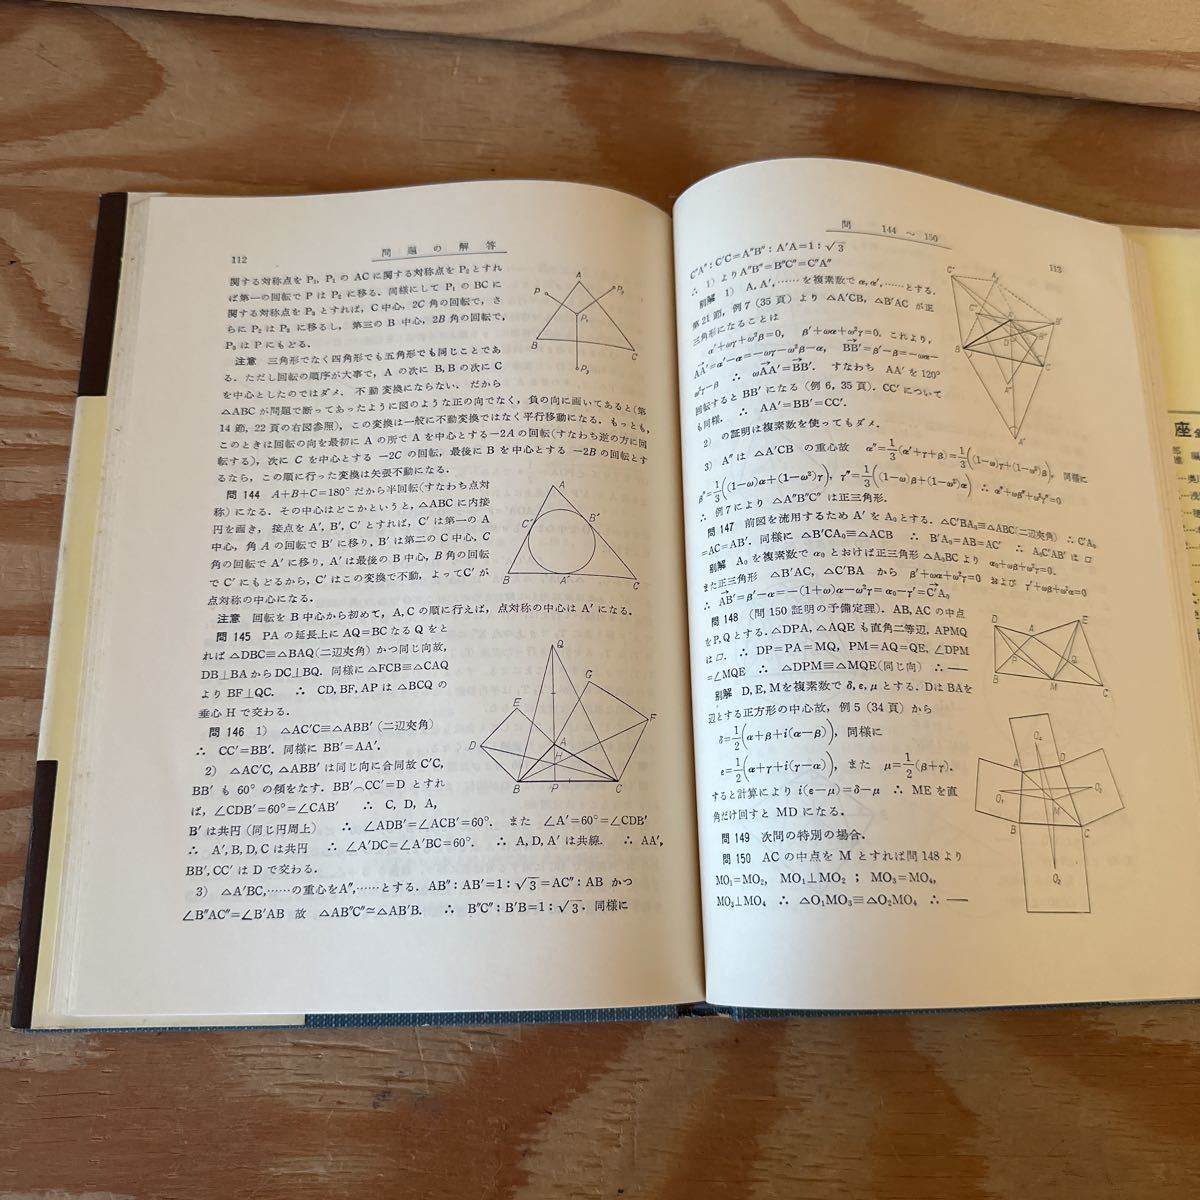 112
問題の解答
関する対称点を P₁, P₁ の AC に関する対称点を P₂ とすれ
ば第一の回転で P は P₂ に移る. 同様にして P₁ の BC に
関する対称点を P₃ とすれば, C中心, 2C 角の回転で, さ
らに P₂ は P₃ に移るし, 第三の B 中心, 2B 角の回転で,
P₃ は P にもどる.
注意 三角形でなく四角形でも五角形でも同じことであ
る. ただし回転の順序が大事で, A の次に B, B の次に C
を中心としたのではダメ. 不動変換にならない. だから
△ABC が問題で断ってあったように図のような正の向でなく, 負の向に画いてあると(第
14 節, 22 頁の右図参照), この変換は一般に不動変換ではなく平行移動になる. もっとも,
このときは回転の向を最初に A の所で A を中心とする −2A の回転(すなわち逆の方に回
転する), 次に C を中心とする −2C の回転, 最後に B を中心とする −2B の回転とす
るなら, この順に行った変換は矢張不動になる.
問 144 A+B+C=180° だから半回転(すなわち点対
称)になる. その中心はどこかというと, △ABC に内接
円を画き, 接点を A′, B′, C′ とすれば, C′ は第一の A
中心, 角 A の回転で B′ に移り, B′ は第二の C 中心, C
角の回転で A′ に移り, A′ は最後の B 中心, B 角の回転
で C′ にもどるから, C′ はこの変換で不動, よって C′ が
点対称の中心になる.
注意 回転を B 中心から初めて, A, C の順に行えば, 点対称の中心は A′ になる.
問 145 PA の延長上に AQ=BC なる Q をと
れば △DBC≡△BAQ (二辺夾角) かつ同じ向故,
DB⊥BA から DC⊥BQ. 同様に △FCB≡△CAQ
より BF⊥QC. ∴ CD, BF, AP は △BCQ の
垂心 H で交わる.
問 146 1) △AC′C≡△ABB′ (二辺夾角)
∴ CC′=BB′. 同様に BB′=AA′.
2) △AC′C, △ABB′ は同じ向に合同故 C′C,
BB′ も 60° の傾をなす. BB′⌒CC′=D とすれ
ば, ∠CDB′=60°=∠CAB′ ∴ C, D, A,
B′ は共円 (同じ円周上) ∴ ∠ADB′=∠ACB′=60°. また ∠A′=60°=∠CDB′
∴ A′, B, D, C は共円 ∴ ∠A′DC=∠A′BC=60°. ∴ A, D, A′ は共線. ∴ AA′,
BB′, CC′ は D で交わる.
3) △A′BC, ……の重心を A″, ……とする. AB″ : AB′=1 : √3=AC″ : AB かつ
∠B″AC″=∠B′AB 故 △AB″C″≃△AB′B. ∴ B″C″ : B′B=1 : √3. 同様に
A
P
P₂
P₁
B
C
P₃
A
C′
B′
B
A′
C
Q
G
E
F
D
A
H
B
P
C
問 144 ～ 150
113
C″A″ : C′C=A″B″ : A′A=1 : √3
∴ 1) より A″B″=B″C″=C″A″
別解 1) A, A′, ……を複素数で α, α′, ……とする.
第 21 節, 例 7 (35 頁) より △A′CB, △B′AC が正
三角形になることは
α′+ωγ+ω²β=0, β′+ωα+ω²γ=0. これより,
AA′=α′−α=−ωγ−ω²β−α, BB′=β′−β=−ωα−
ω²γ−β ∴ ωAA′=BB′. すなわち AA′ を 120°
回転すると BB′ になる (例 6, 35 頁). CC′ について
も同様. ∴ AA′=BB′=CC′.
2) の証明は複素数を使ってもダメ.
3) A″ は △A′CB の重心故 α″=1/3(α′+γ+β)=1/3((1−ω)γ+(1−ω²)β), 同様に
β″=1/3((1−ω)α+(1−ω²)γ), γ″=1/3((1−ω)β+(1−ω²)α) ∴ α″+ωβ″+ω²γ″=0
∴ 例 7 により △A″B″C″ は正三角形.
問 147 前図を流用するため A′ を A₀ とする. △C′BA₀≡△ABC(二辺夾角) ∴ C′A₀
=AC=AB′. 同様に △B′CA₀≡△ACB ∴ B′A₀=AB=AC′ ∴ A₀C′AB′ は □
別解 A₀ を複素数で α₀ とおけば正三角形 △A₀BC より α₀+ωβ+ω²γ=0.
また正三角形 △B′AC, △C′BA から β′+ωα+ω²γ=0 および γ′+ωβ+ω²α=0
∴ AB′=β′−α=−(1+ω)α−ω²γ=α₀−γ′=C′A₀
問 148 (問 150 証明の予備定理). AB, AC の中点
を P, Q とする. △DPA, △AQE も直角二等辺, APMQ
は □. ∴ DP=PA=MQ, PM=AQ=QE, ∠DPM
=∠MQE ∴ △DPM≡△MQE(同じ向) ∴ ──
別解 D, E, M を複素数で δ, ε, μ とする. D は BA を
辺とする正方形の中心故, 例 5 (34 頁) から
δ=1/2(α+β+i(α−β)), 同様に
ε=1/2(α+γ+i(γ−α)), また μ=1/2(β+γ).
すると計算により i(ε−μ)=δ−μ ∴ ME を直
角だけ回すと MD になる.
問 149 次問の特別の場合.
問 150 AC の中点を M とすれば問 148 より
MO₁=MO₂, MO₁⊥MO₂ ; MO₃=MO₄,
MO₃⊥MO₄ ∴ △O₁MO₃≡△O₂MO₄ ∴ ──
D
E
A
P
Q
B
M
C
O₄
A
D
O₁
O₃
M
B
C
O₂
座